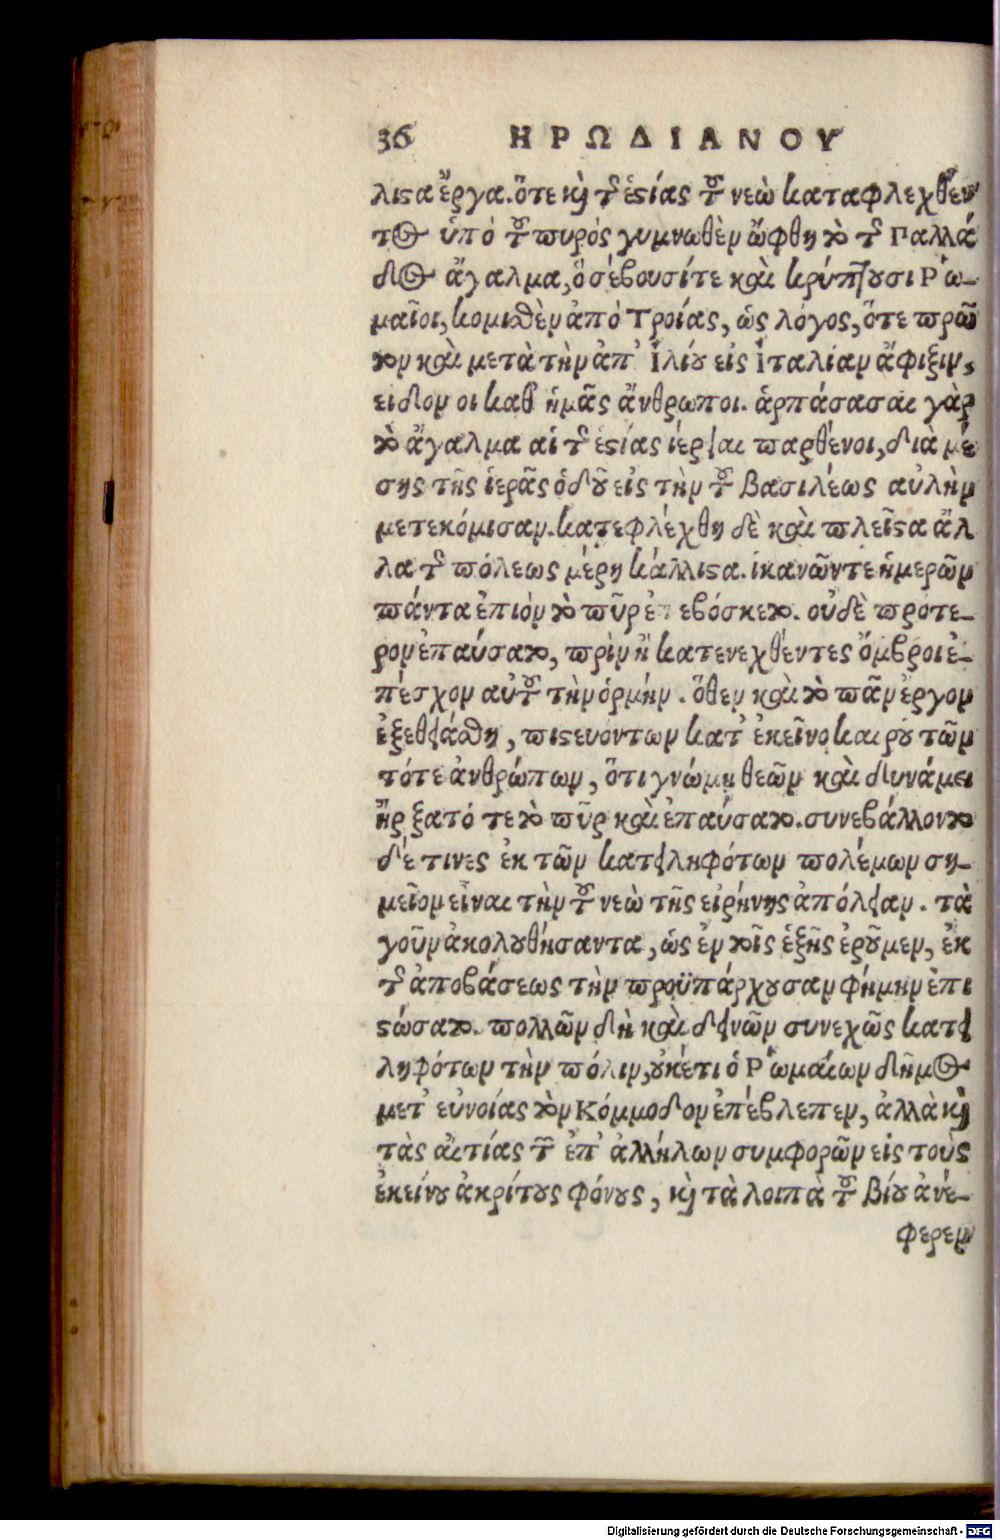 36 ΗΡΩΔΙΑΝΟΥ
λιϛα ἔργα. ὅτε καὶ τῆς ἑϛίας τοῦ νεὼ καταφλεχθέν
τος ὑπὸ τοῦ πυρός γυμνωθὲν ὤφθη τὸ τῆς Παλλά
δος ἄγαλμα, ὃ σέβουσίτε καὶ κρύπτουσι Ῥω-
μαῖοι, κομισθὲν ἀπὸ Τροίας, ὡς λόγος, ὅτε πρῶ
τον καὶ μετὰ τὴν ἀπ' Ἰλίου εἰς Ἰταλίαν ἄφιξιν,
ειδον οι καθ' ἡμᾶς ἄνθρωποι. ἁρπάσασαι γὰρ
τὸ ἄγαλμα αἱ τῆς ἑϛίας ἱέρειαι παρθένοι, διὰ μέ
σης τῆς ἱερᾶς ὁδοῦ εἰς τὴν τοῦ βασιλέως αὐλὴν
μετεκόμισαν. κατεφλέχθη δὲ καὶ πλεῖϛα ἄλ
λα τῆς πόλεως μέρη κάλλιϛα. ἱκανῶντε ἡμερῶν
πάντα ἐπιὸν τὸ πῦρ ἐπεβόσκετο. οὐδὲ προτε-
ρον ἐπαύσατο, πρὶν ἢ κατενεχθέντες ὄμβροι ἐ-
πέσχον αὐτοῦ τὴν ὁρμήν. ὅθεν καὶ τὸ πᾶν ἔργον
ἐξεθειάσθη, πιϛευόντων κατ' ἐκεῖνο καιροῦ τῶν
τότε ἀνθρώπων, ὅτι γνώμη θεῶν καὶ δυνάμει
ἤρξατό τε τὸ πῦρ καὶ ἐπαύσατο. συνεβάλλοντο
δέ τινες ἐκ τῶν κατειληφότων πολέμων ση-
μεῖον εἶναι τὴν τοῦ νεὼ τῆς εἰρήνης ἀπόλειαν. τὰ
γοῦν ἀκολουθήσαντα, ὡς ἐν τοῖς ἑξῆς ἐροῦμεν, ἐκ
τῆς ἀποβάσεως τὴν προϋπάρχουσαν φήμην ἐπι
ϛώσατο. πολλῶν δὴ καὶ δεινῶν συνεχῶς κατει
ληφότων τὴν πόλιν, οὐκέτι ὁ Ῥωμαίων δῆμος
μετ' εὐνοίας τὸν Κόμμοδον ἐπέβλεπεν, ἀλλὰ καὶ
τὰς αἰτίας τῶν ἐπ' ἀλλήλων συμφορῶν εἰς τοὺς
ἐκείνου ἀκρίτους φόνους, καὶ τὰ λοιπὰ τοῦ βίου ἀνέ-
φερεν
Digitalisierung gefördert durch die Deutsche Forschungsgemeinschaft - DFG